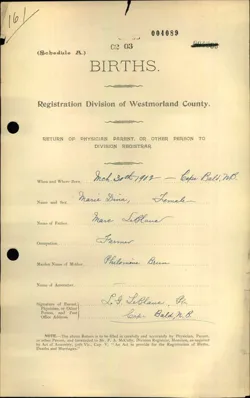 161
004089
(Schedule A.)
02 03
004089
BIRTHS.
Registration Division of Westmorland County.
RETURN OF PHYSICIAN PARENT, OR OTHER PERSON TO
DIVISION REGISTRAR
When and Where Born, Mch 30th 1912 - Cape Bald, N.B.
Name and Sex, Marie Dina, Female
Name of Father, Marc LeBlanc
Occupation, Farmer
Maiden Name of Mother, Philomène
Name of Ancestor,
Signature of Parent,
Physician or Other
Person, and Post
Office Address.
LeBlanc
Cape Bald, N.B.
NOTE.—The above Return is to be carefully and accurately by Physician, Parent,
or other Person, and forwarded to Division Registrar, Moncton, as required
by Act of Assembly, Cap. V, "An Act to provide for the Registration of Births,
Deaths and Marriages."